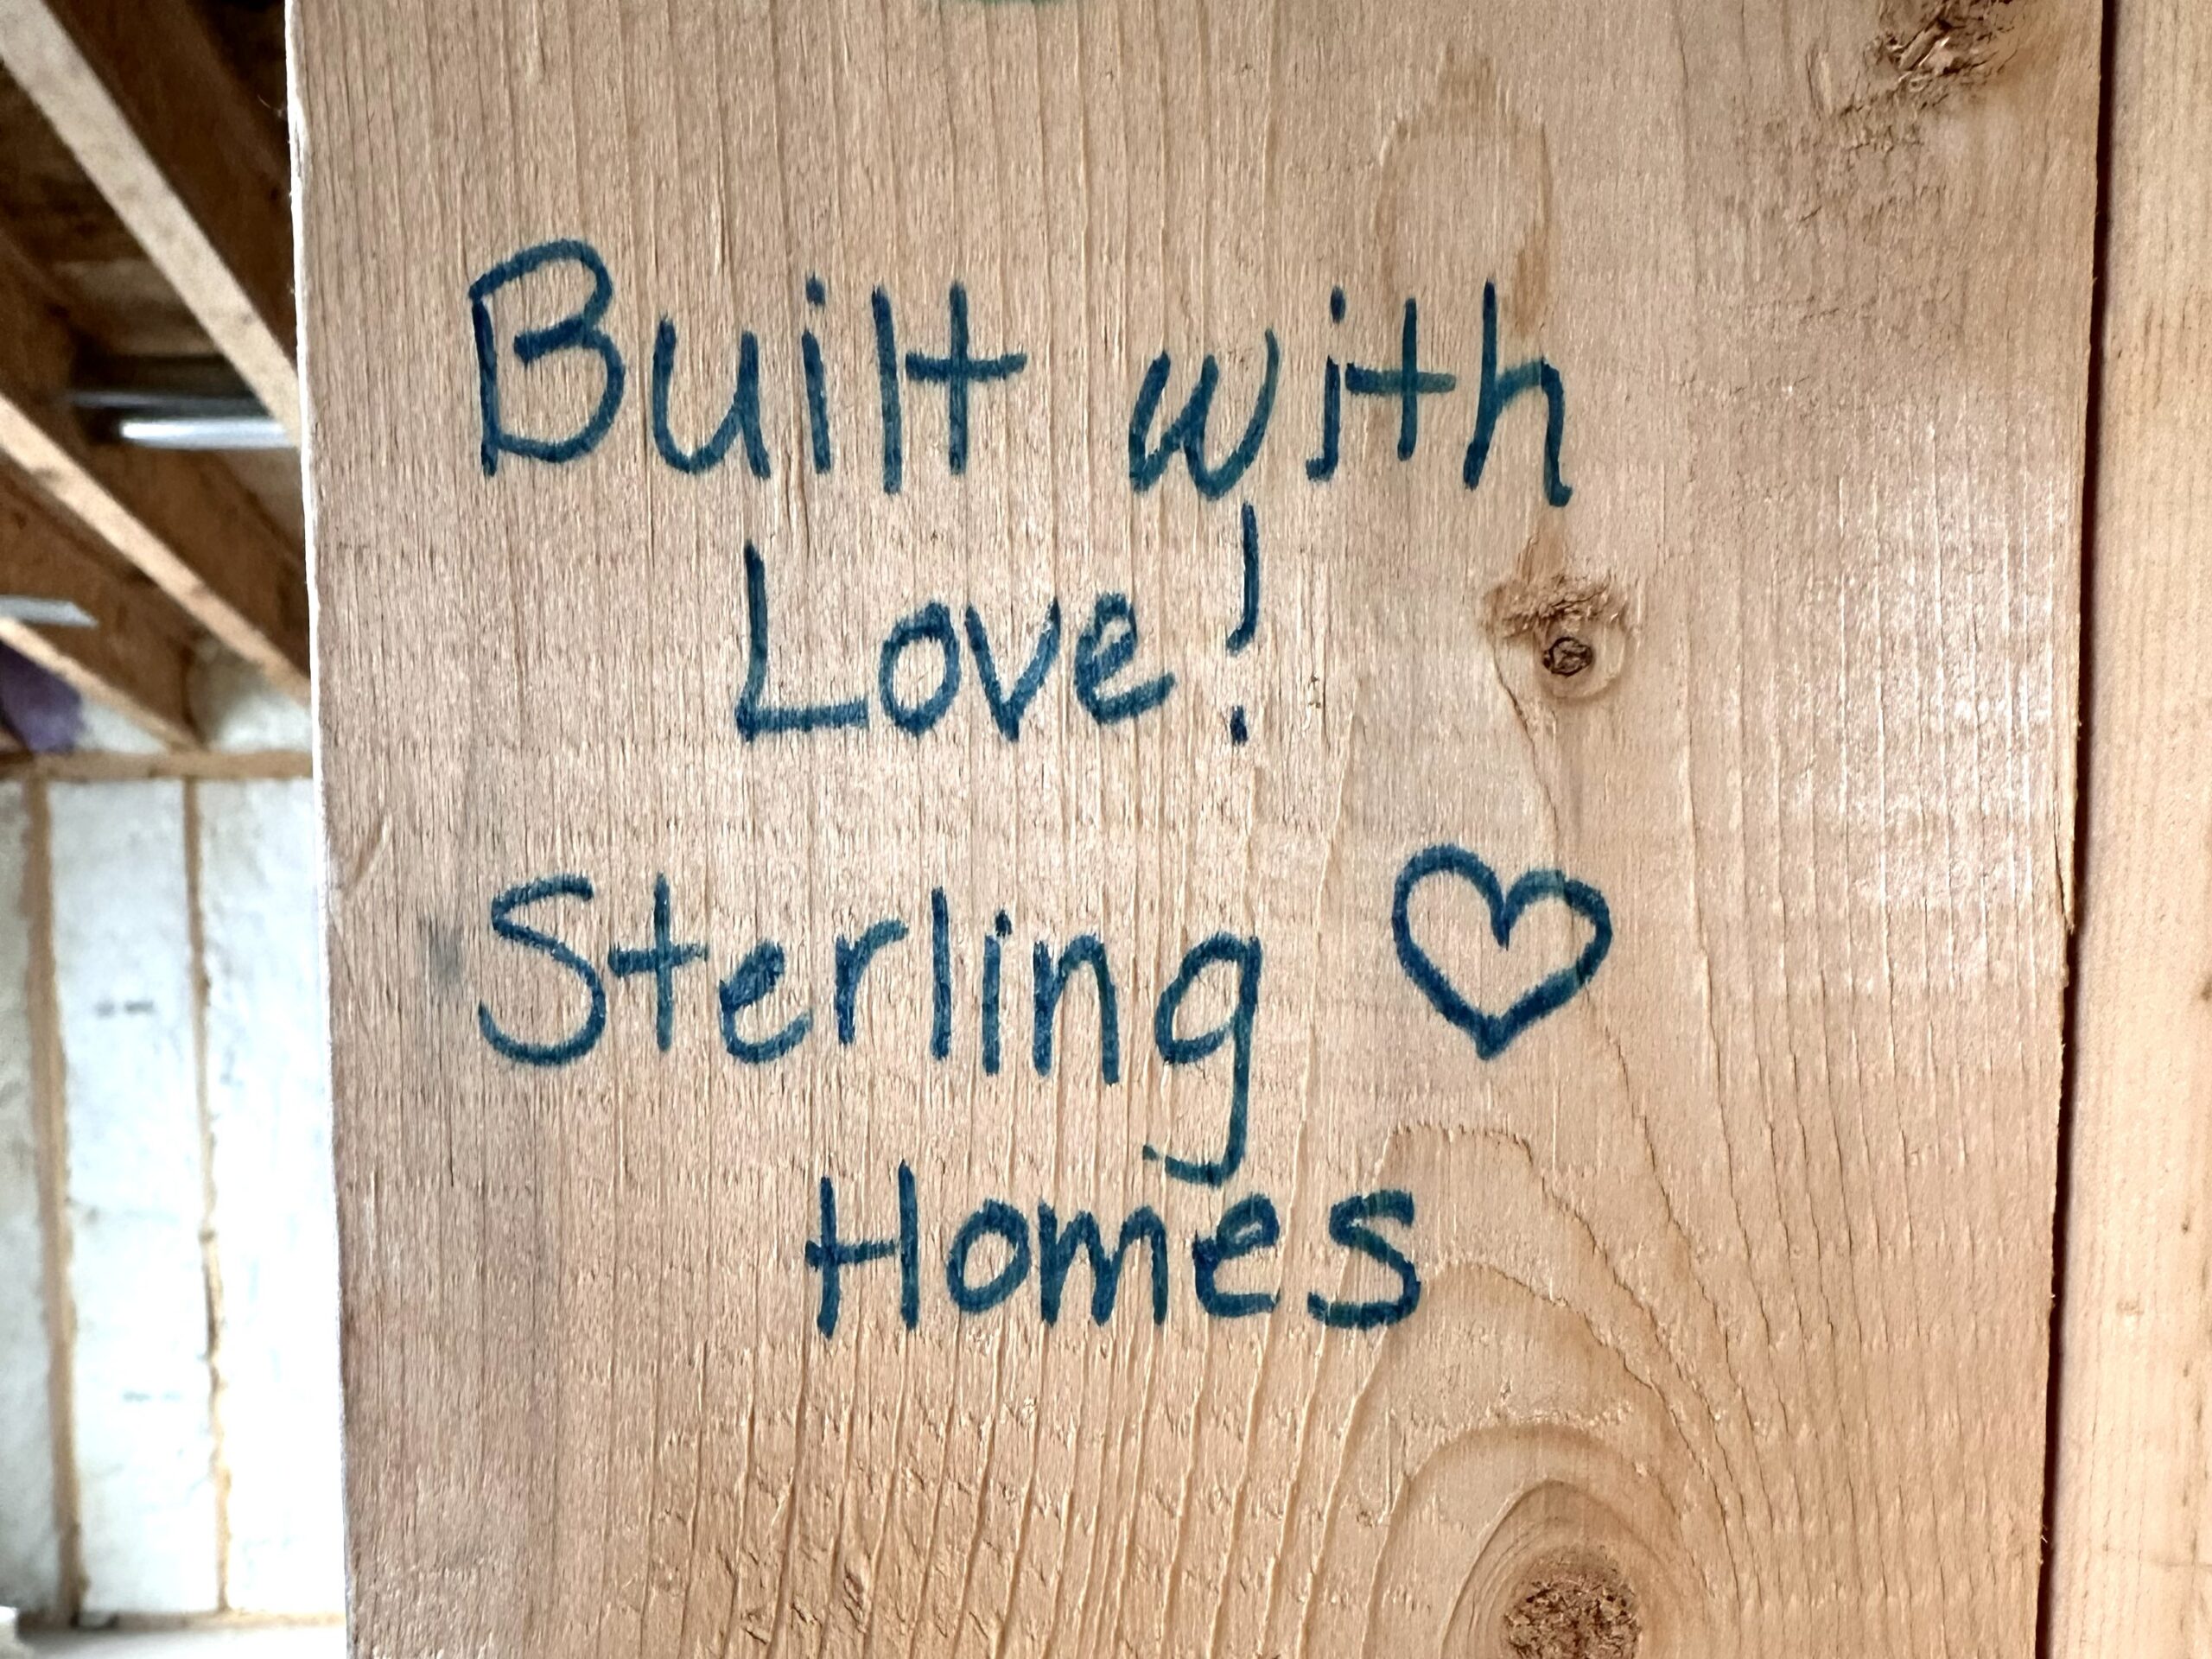 Built with
Love!
Sterling ♡
Homes